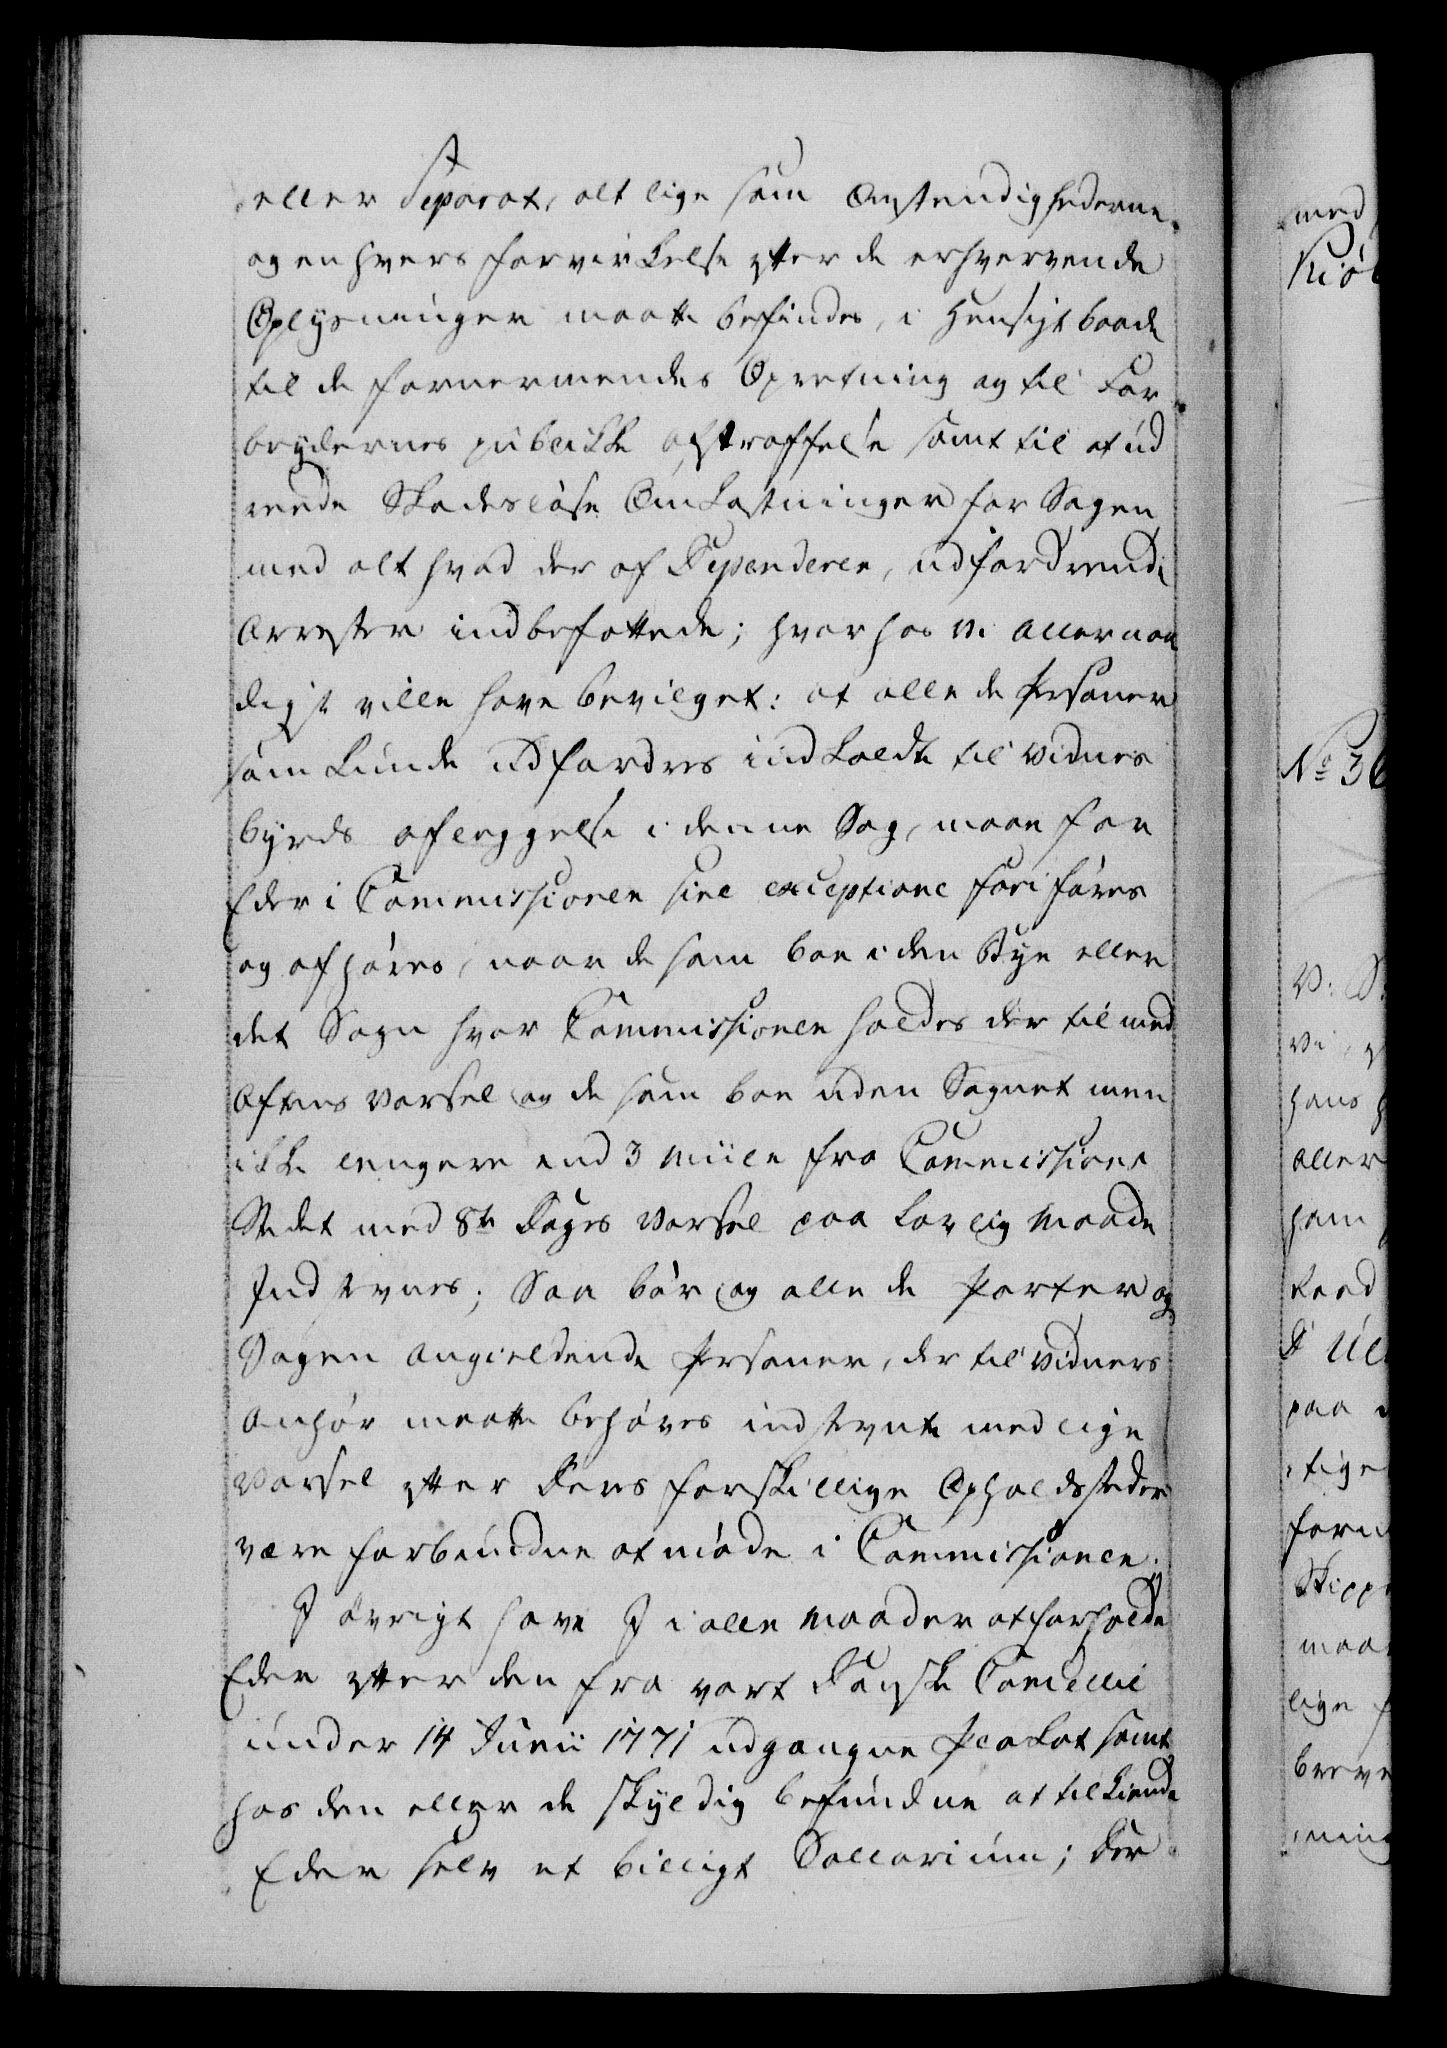 eller Separat, alt lige som Omstendighederne
og enhvers forvirkelse efter de erhvervende
Oplysninger maatte befindes, i Hensigt baade
til de fornermendes Opretning og til For
brydernes publikke afstraffelse samt til at ud
rede Skadesløse Omkostninger for Sagen
med alt hvad der af Dependerer, udfordrende
Arrester indbefattede; hvorhos Vi Allernaa
digst ville have bevilget: at alle de Personer
som kunde udfordres indkaldte til Vidnes
byrds aflæggelse i denne Sag, maae for
Eder i Commissionen sine exceptione fori føres
og afhøres, naar de som boe i den Bye eller
det Sogn hvor Commissionen holdes der til med
Aftens Varsel og de som boe uden Sognet men
ikke lengere end 3 Miile fra Commissions
Stedet med 8te Dages Varsel paa lovlig Maade
Indstevnes; Saa bør og alle de Parter og
Sagen angieldende Personer, der til Vidners
Anhør maatte behøves indstevnte med lige
Varsel efter deres forskillige Opholdssteder
være forbundne at møde i Commissionen.
I øvrigt have I i alle Maader at forholde
Eder efter den fra vort Danske Cancellie
under 14 Junii 1771 udgangne Placat samt
hos den eller de skyldig befundne at tilkiende
Eder selv et billigt Sallarium; Der
med
Kiøb
No 36
V: S:
Vi, g
hans
Aller
ham
Raad
D Ul
paa
tige
forn
Skipp
maa
lige
breve
ning